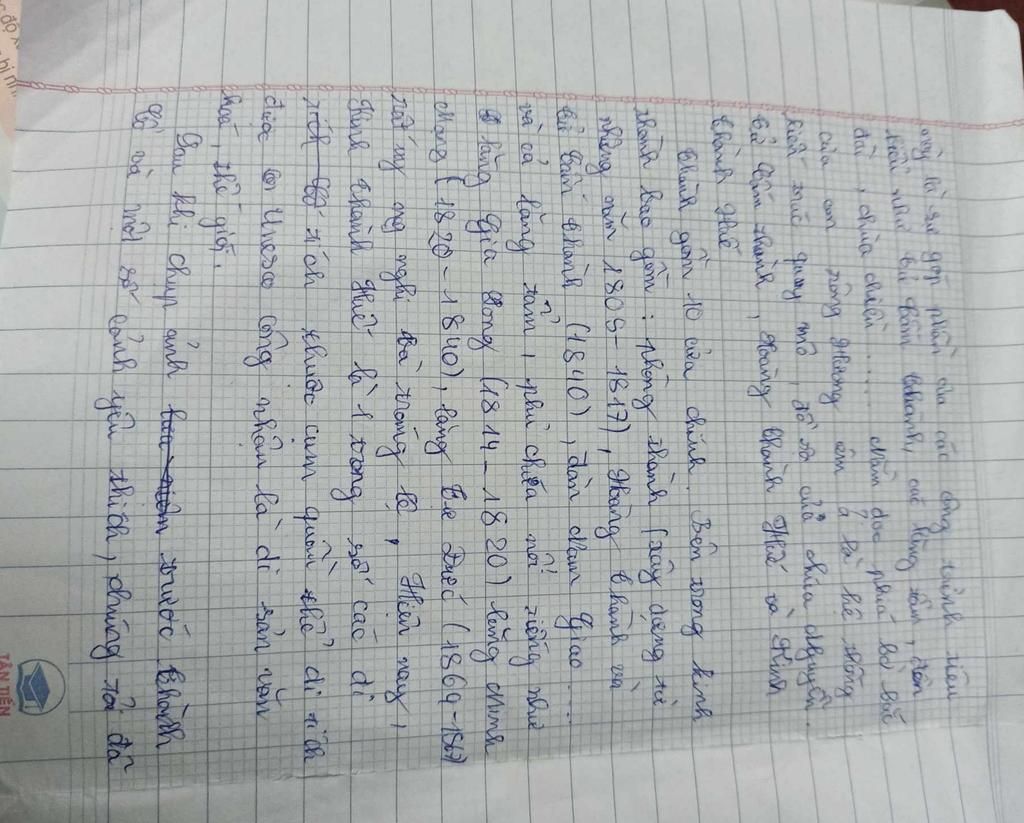 đây là sự góp phần của các công trình kiến
trúc như tử cấm thành, các lăng tẩm, đền
đài, chùa chiền..... Nằm dọc phía bờ Bắc
của con sông Hương êm ả là hệ thống
kiến trúc quy mô, đồ sộ của chúa Nguyễn.
tử cấm thành, Hoàng thành Huế và Kinh
thành Huế
thành gồm 10 cửa chính. Bên trong kinh
thành bao gồm: phòng thành (xây dựng từ
những năm 1805-1817), Hoàng thành và
tử cấm thành (1840), đàn Nam Giao....
và cả lăng tẩm, phủ chúa nổi tiếng như
lăng Gia Long (1814-1820) lăng Minh
Mạng (1820-1840), lăng Tự Đức (1864-1867)
rất uy nghi và tráng lệ. Hiện nay,
Kinh thành Huế là 1 trong số các di
tích thuộc cụm quần thể di tích
được Unesco công nhận là di sản văn
hoá thế giới.
Sau khi chụp ảnh trước thành
cổ và một số cảnh yêu thích, chúng tôi đã
TÂN TIẾN